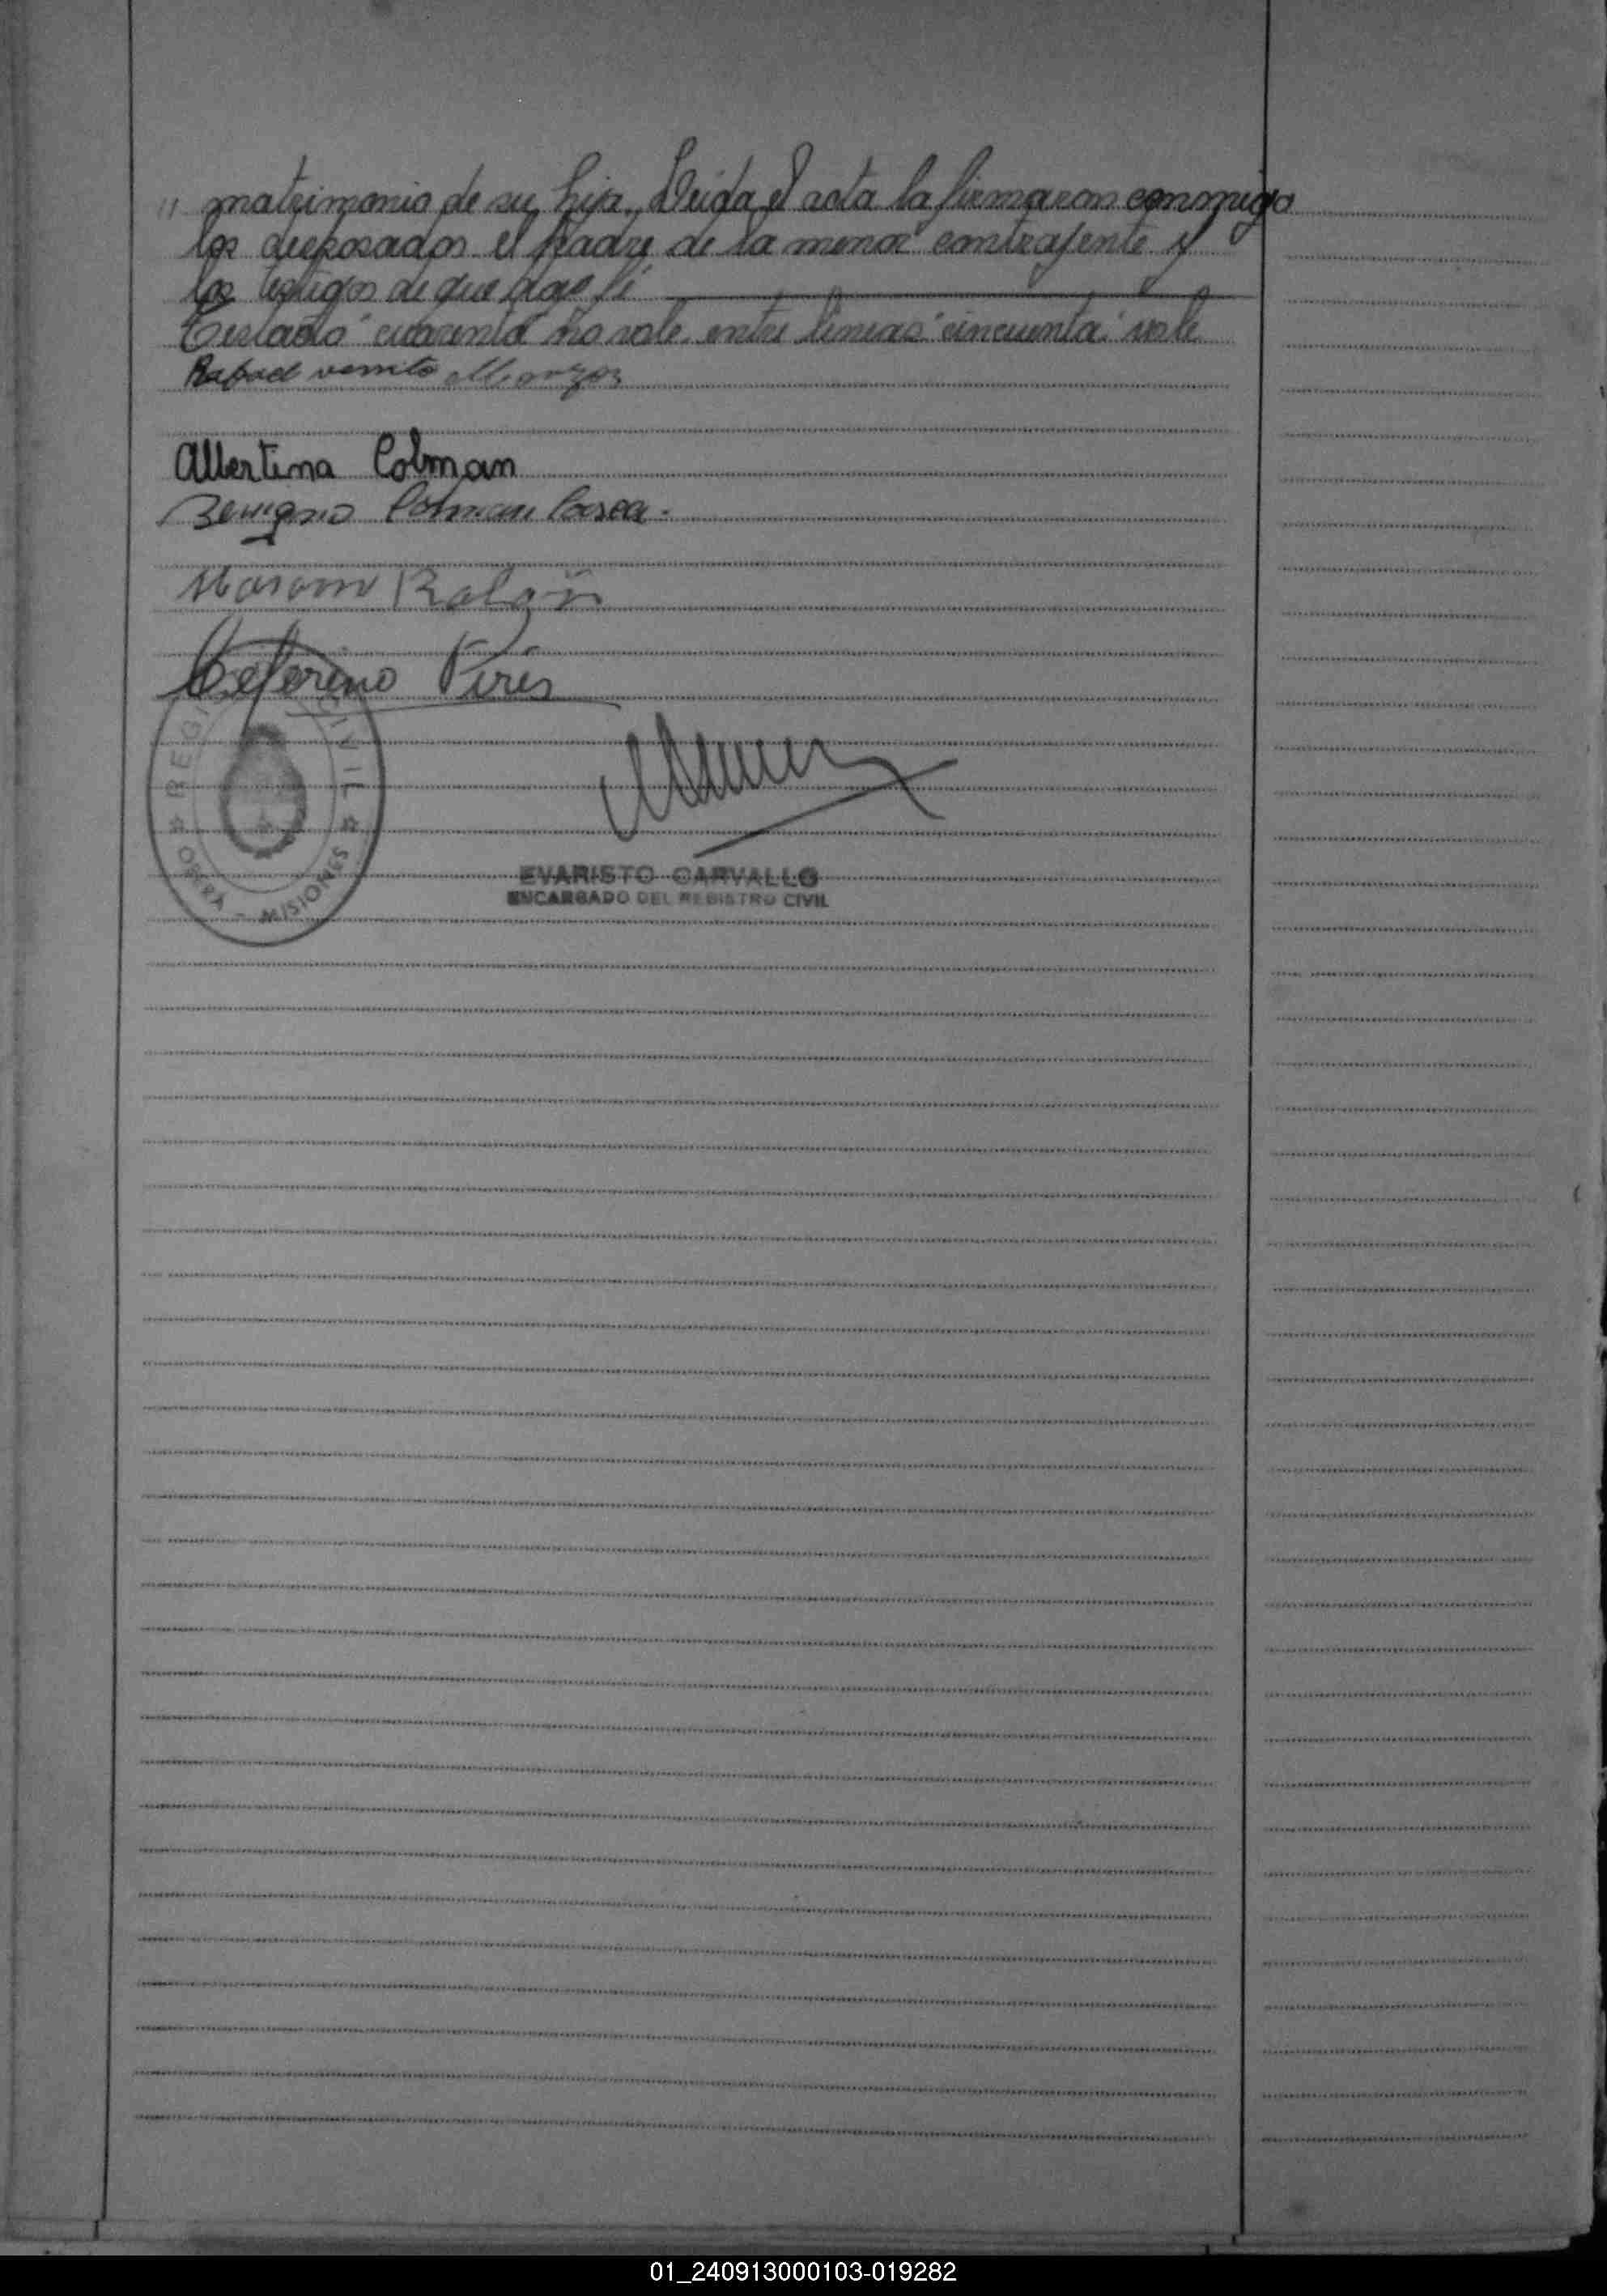 " matrimonio de su hija. Leida el acta la firmaron conmigo
los desposados el padre de la menor contrayente y
los testigos de que doy fé
Testado "cuarenta" no vale. entre lineas "cincuenta" vale
Rafael venito
Albertina Colman
Benigno Colman
Ceferino Pires
REGI CIVIL
OBERA - MISIONES
EVARISTO CARVALLO
ENCARGADO DEL REGISTRO CIVIL
01_240913000103-019282